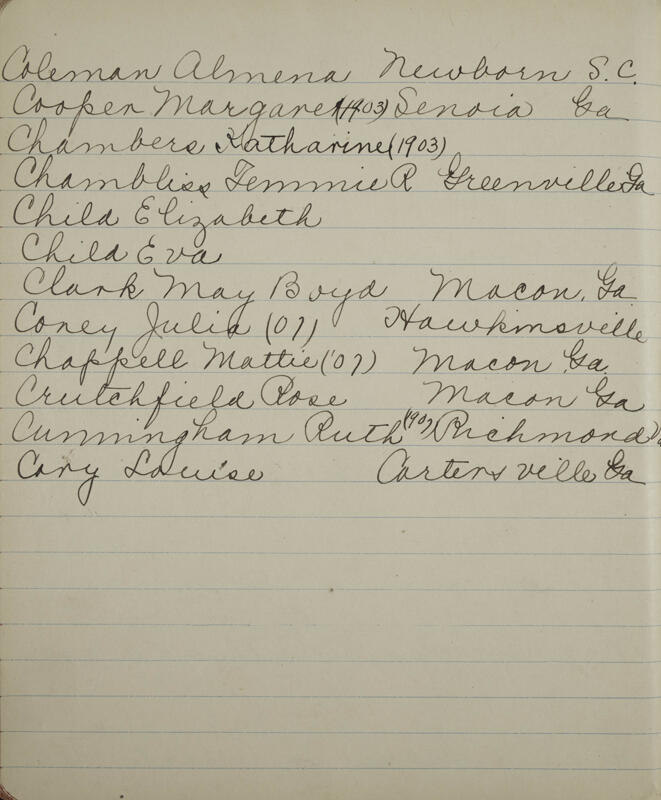 Coleman Almena Newborn S.C.
Cooper Margaret (1903) Senoia Ga
Chambers Katharine (1903)
Chambliss Temmie R Greenville Ga
Child Elizabeth
Child Eva
Clark May Boyd Macon, Ga
Coney Julia (07) Hawkinsville
Chappell Mattie ('07) Macon Ga.
Crutchfield Rose Macon Ga
Cunningham Ruth (1907) Richmond
Cary Louise Cartersville Ga